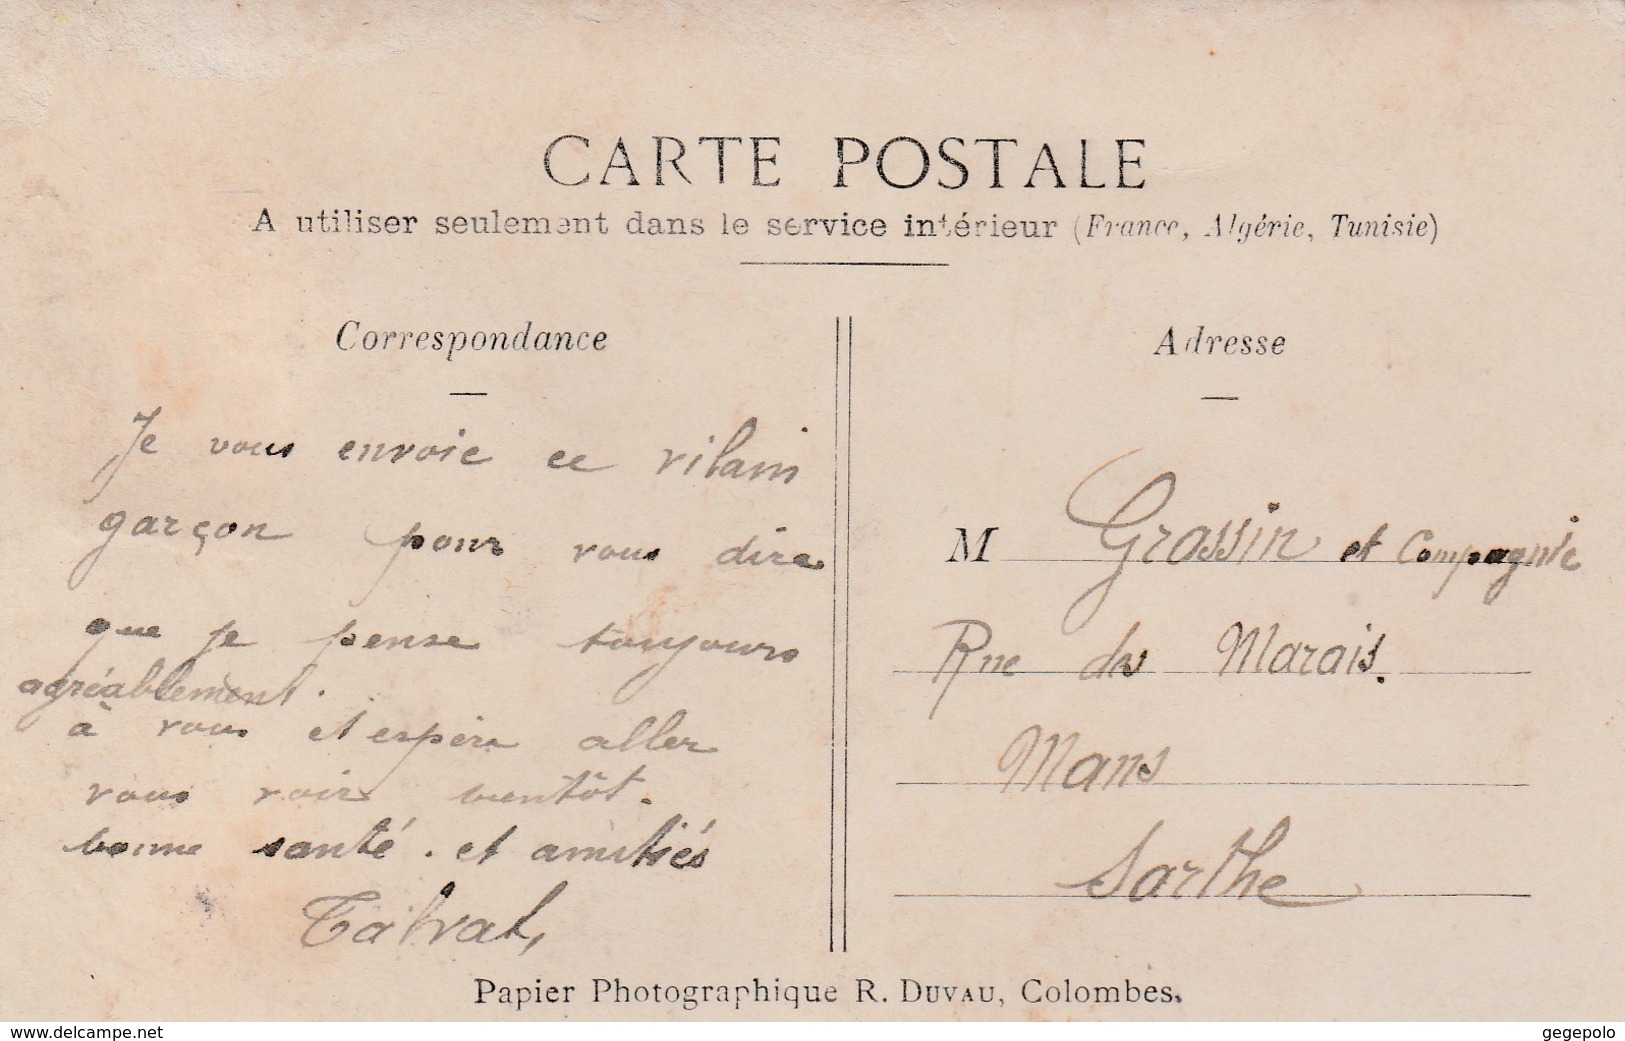 CARTE POSTALE
A utiliser seulement dans le service intérieur (France, Algérie, Tunisie)
Correspondance
Je vous envoie ce vilain
garçon pour vous dire
que je pense toujours
agréablement.
à vous et espère aller
vous voir bientôt.
bonne santé. et amitiés
Adresse
M Grassin et Compagnie
Rue des Marais.
Mans
Sarthe
Papier Photographique R. DUVAU, Colombes.
www.delcampe.net
gegepolo